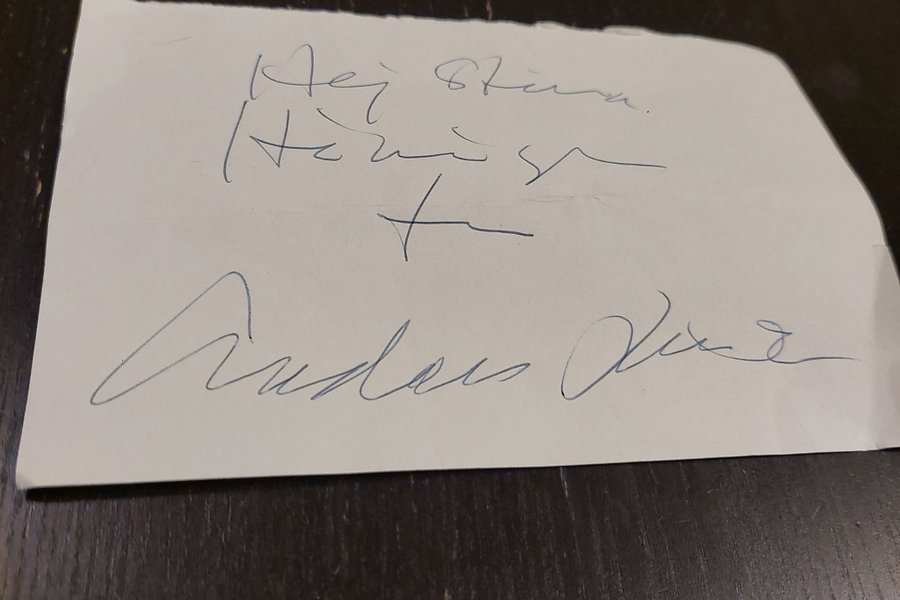 Hej Stina
Hälsningar
fr
Anders